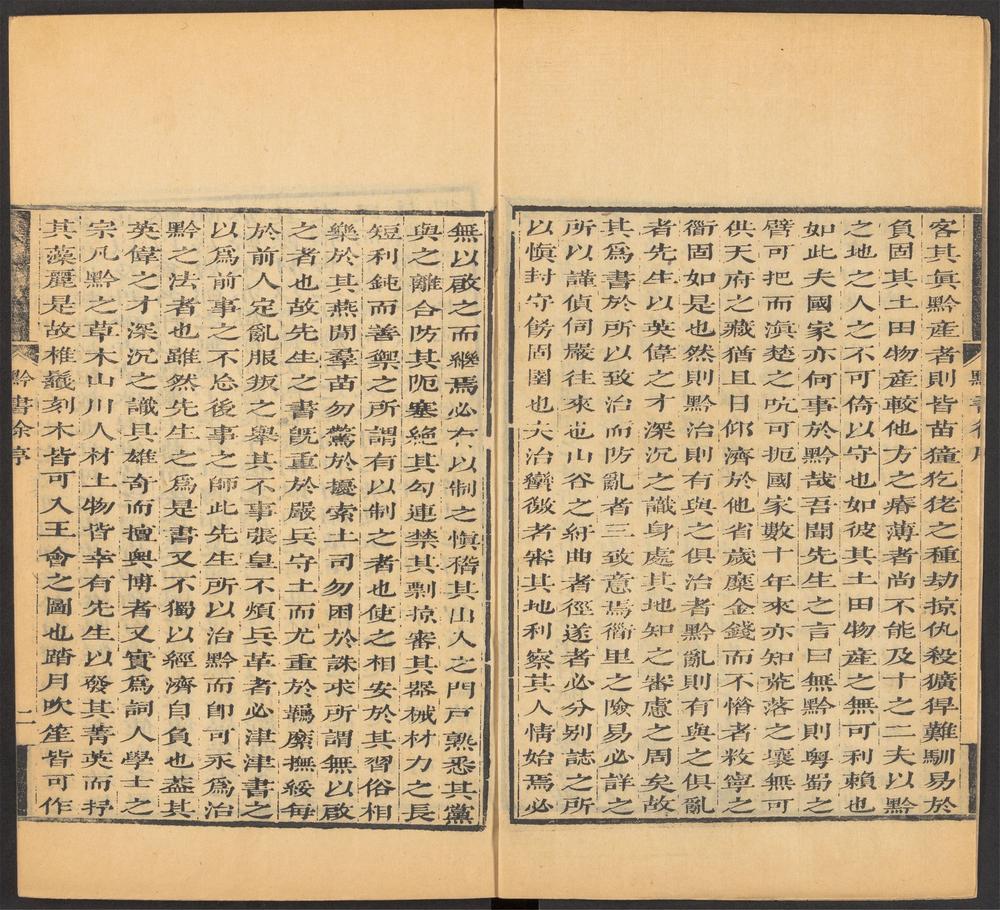 客其眞黔產者則皆苗獞犵狫之種劫掠仇殺獷悍難馴易於
負固其土田物產較他方之瘠薄者尚不能及十之二夫以黔
之地之人之不可倚以守也如彼其土田物產之無可利賴也
如此夫國家亦何事於黔哉吾聞先生之言曰無黔則粤蜀之
臂可把而滇楚之吭可扼國家數十年來亦知荒落之壤無可
供天府之藏猶且日仰濟於他省歲糜金錢而不惜者敉寧之
衝固如是也然則黔治則有與之俱治者黔亂則有與之俱亂
者先生以英偉之才深沉之識身處其地知之審慮之周矣故
其爲書於所以致治而防亂者三致意焉衝里之險易必詳之
所以謹偵伺嚴往來也山谷之紆曲者徑遂者必分別誌之所
以愼封守傍固圉也夫治蠻徼者審其地利察其人情始焉必
無以啟之而繼焉必有以制之愼稽其出入之門戸熟悉其黨
與之離合防其阨塞絕其勾連禁其剽掠審其器械材力之長
短利鈍而善禦之所謂有以制之者也使之相安於其習俗相
樂於其燕閒羣苗勿驚於擾索土司勿困於誅求所謂無以啟
之者也故先生之書旣重於嚴兵守土而尤重於羈縻撫綏每
於前人定亂服叛之舉其不事張皇不煩兵革者必津津書之
以爲前事之不忘後事之師此先生所以治黔而卽可永爲治
黔之法者也雖然先生之爲是書又不獨以經濟自負也葢其
英偉之才深沉之識具雄奇而擅奥博者又實爲詞人學士之
宗凡黔之草木山川人材土物皆幸有先生以發其菁英而抒
其藻麗是故椎髻刻木皆可入王會之圖也踏月吹笙皆可作
黔書徐序
二